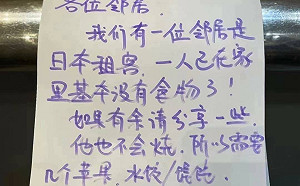 各位邻居.
我们有一位邻居是
日本租客,一人已在家
里基本没有食物了!
如果有余请分享一些.
他也不会烧.所以需要
几个苹果.水饺/馄饨